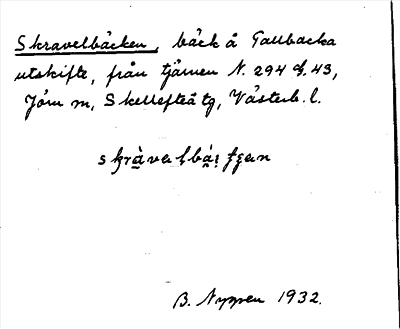 Skravelbäcken, bäck å Tallbacka
utskifte, från tjärnen N. 294 af. 43,
Jörn m, Skellefteå tg, Västerb. l.
B. Nyppen 1932.